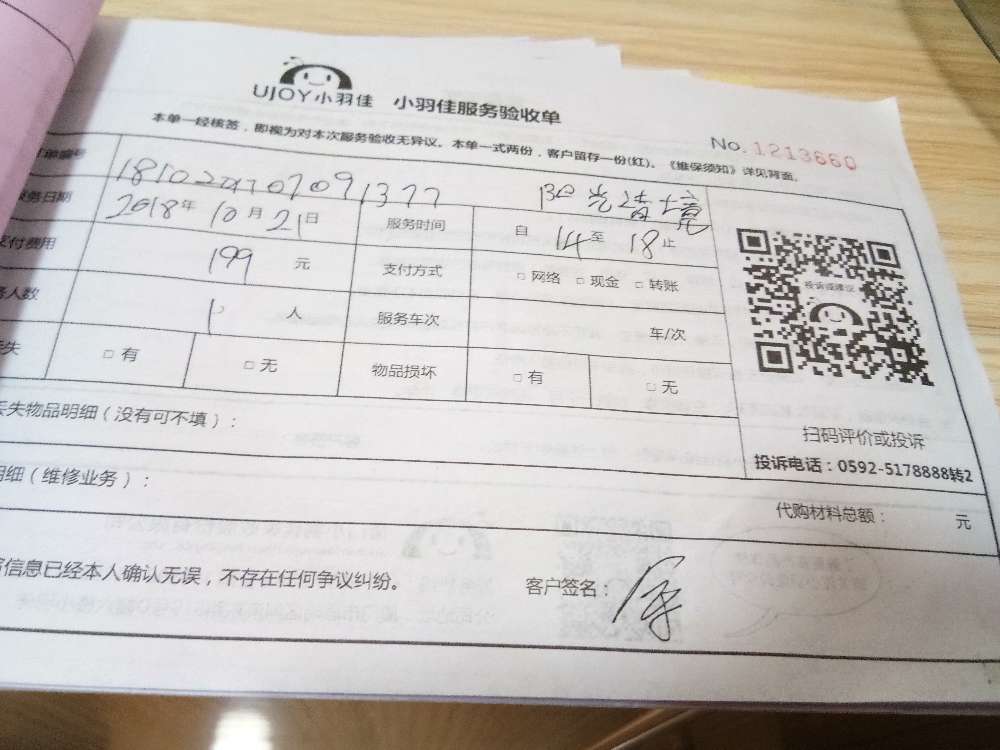 UJOY小羽佳 小羽佳服务验收单
本单一经核签，即视为对本次服务验收无异议。本单一式两份，客户留存一份(红)。《维保须知》详见背面。
No. 1213660
单编号
务日期 2018年10月21日 服务时间 自 14 至 18 止
付费用 199 元 支付方式 □ 网络 □ 现金 □ 转账
人数 1 人 服务车次 车/次
失 □ 有 □ 无 物品损坏 □ 有 □ 无
投诉或建议
扫码评价或投诉
投诉电话：0592-5178888转2
失物品明细（没有可不填）：
明细（维修业务）：
代购材料总额： 元
信息已经本人确认无误，不存在任何争议纠纷。 客户签名：